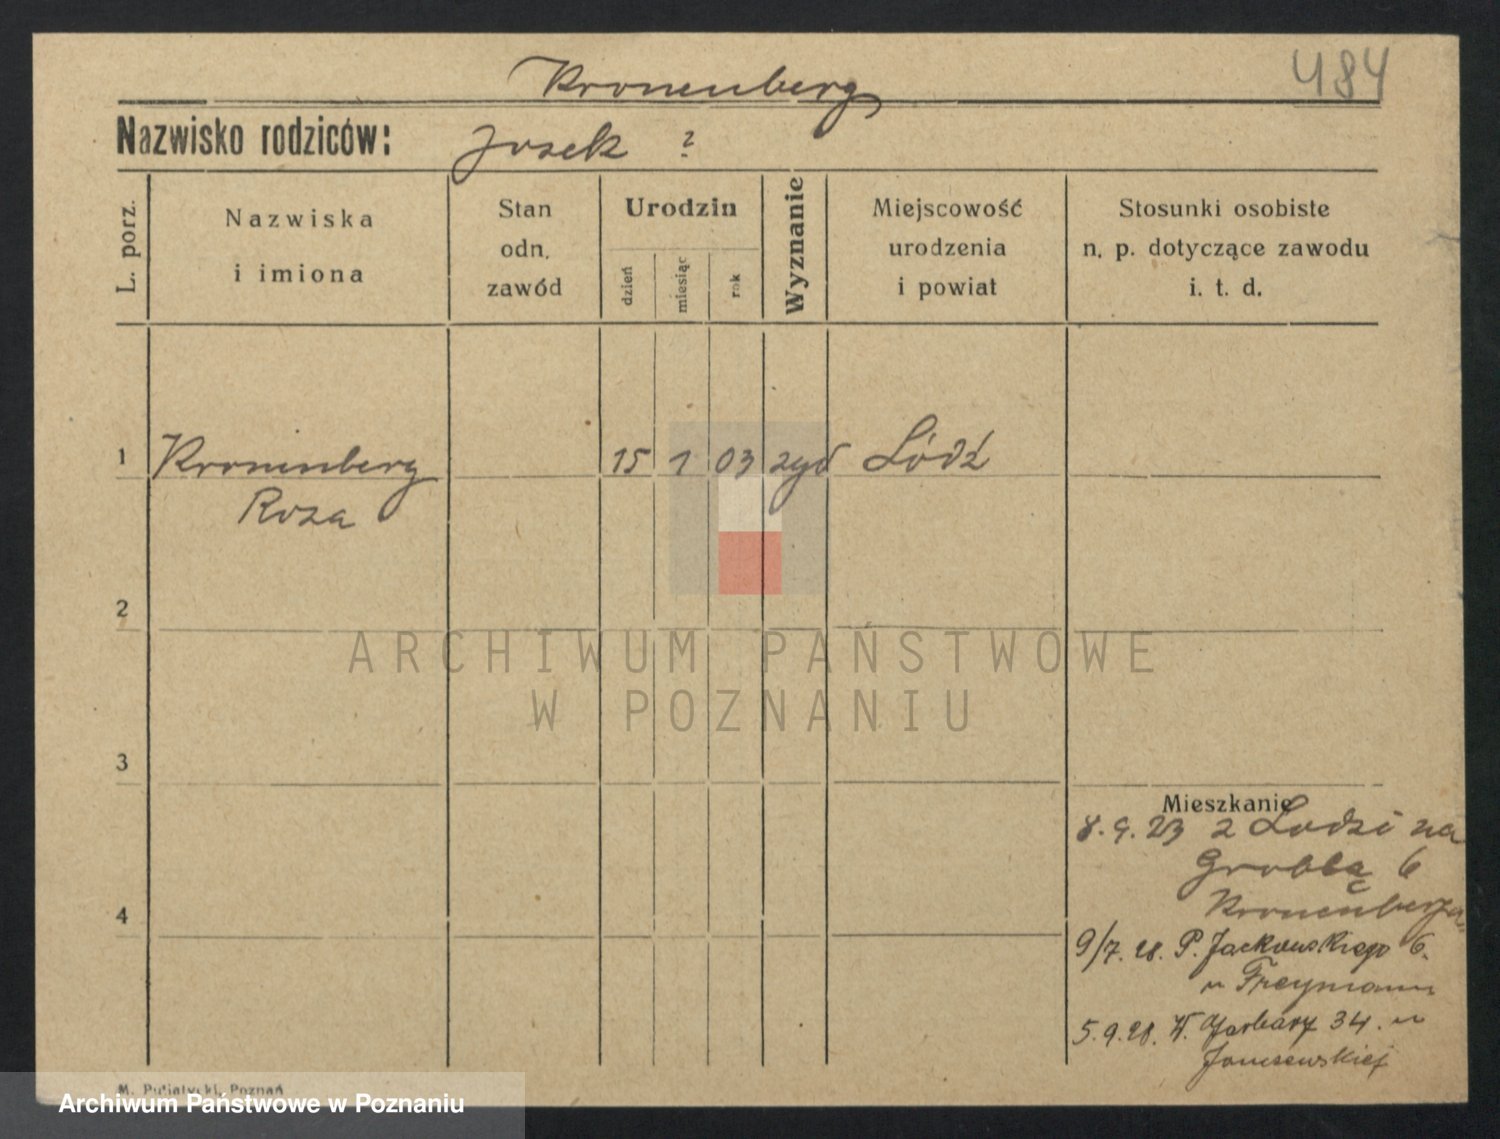 Kronenberg
484
Nazwisko rodziców: Josek ?
L. porz.
Nazwiska
i imiona
Stan
odn.
zawód
Urodzin
dzień
miesiąc
rok
Wyznanie
Miejscowość
urodzenia
i powiat
Stosunki osobiste
n. p. dotyczące zawodu
i. t. d.
1 Kronenberg 15 1 03 zyd Łódź
Roza
2
3
4
Mieszkanie
8.9.23 z Lodzi na
Groblą 6
Kronenberga
9/7. 28. P. Jackowskiego 6.
u Freymann
5.9.28. W. Garbary 34. u
Janczewskiej
M. Putiatycki, Poznań
ARCHIWUM PAŃSTWOWE
W POZNANIU
Archiwum Państwowe w Poznaniu